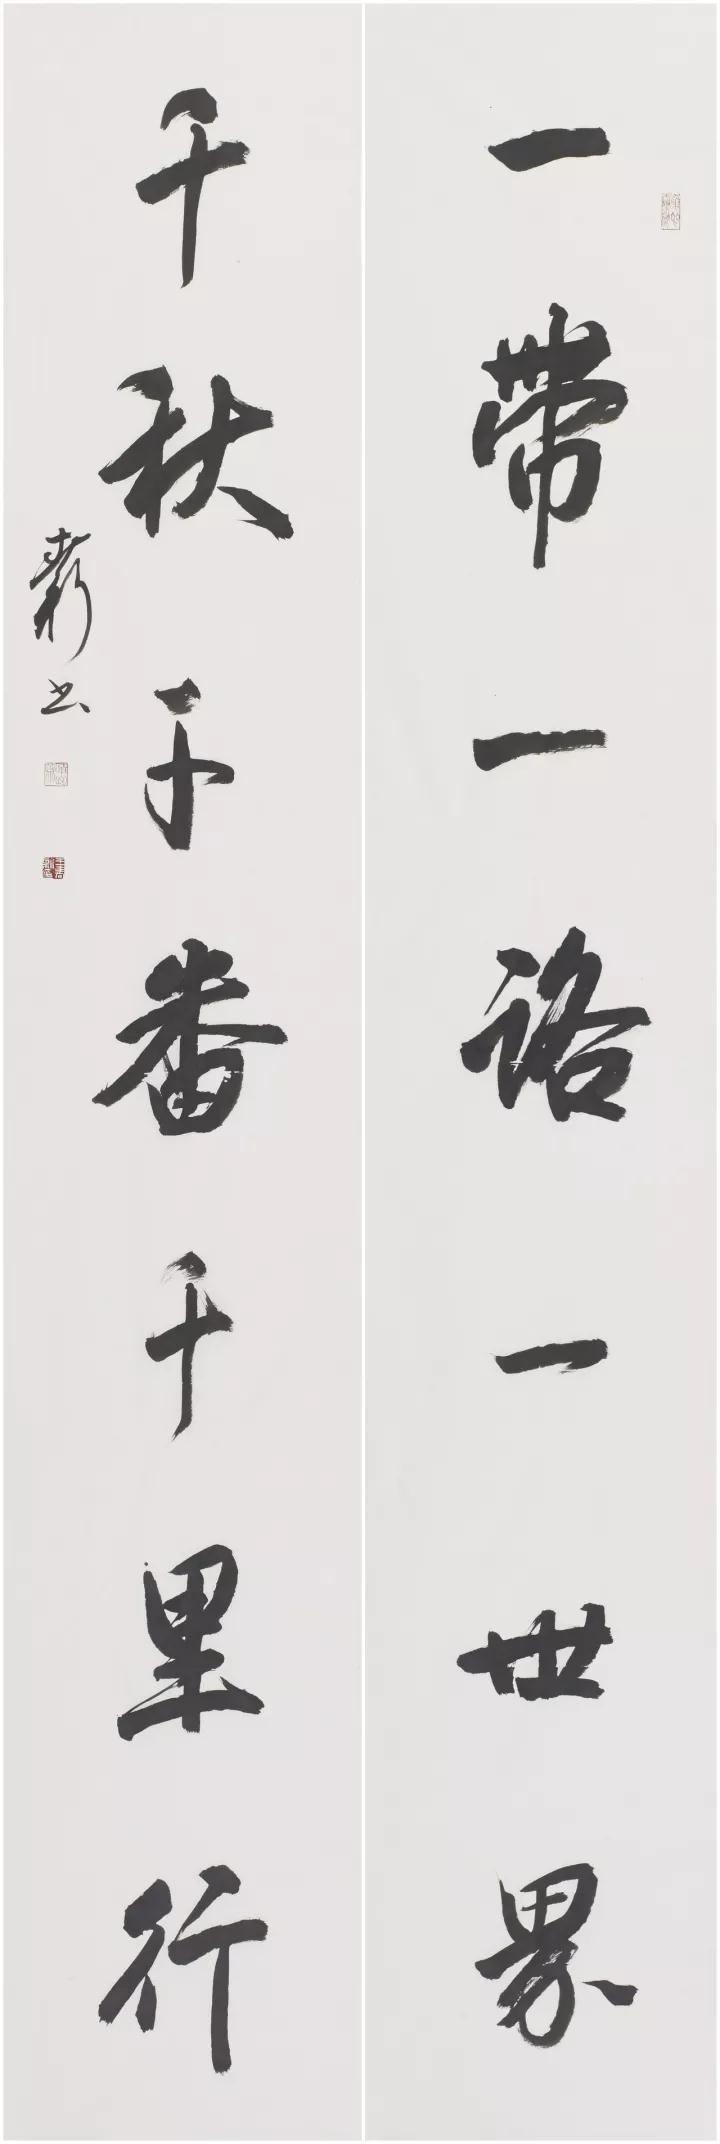 一带一路一世界
千秋千番千里行
书